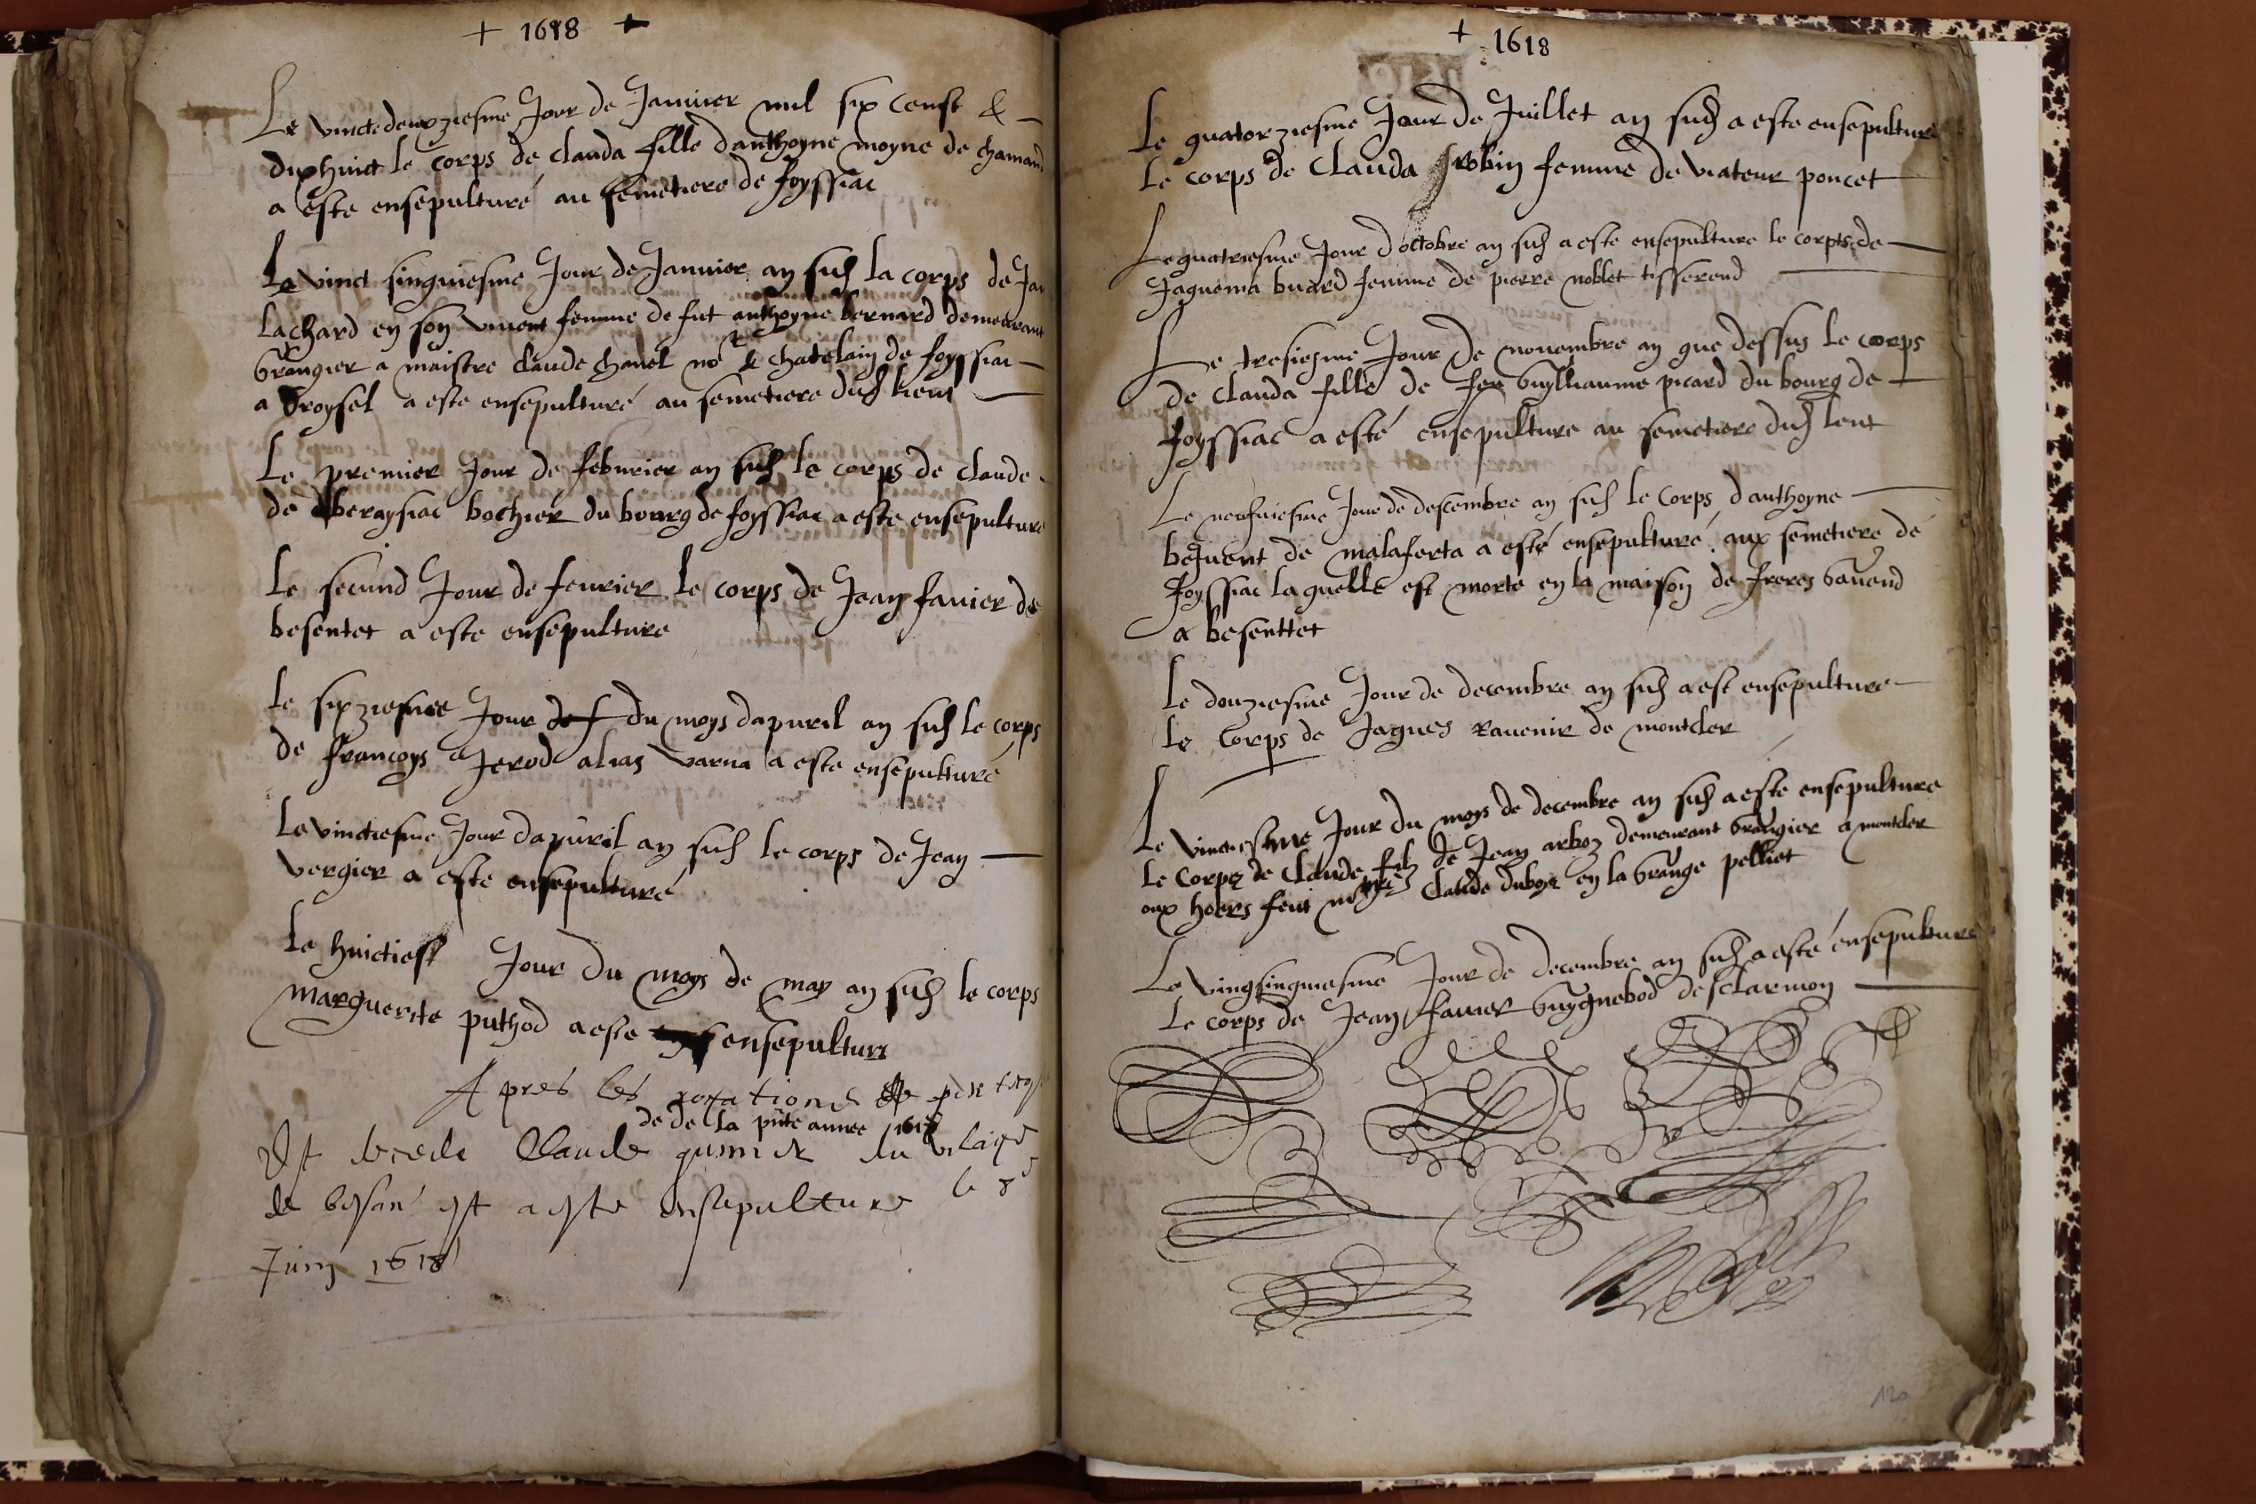 + 1618 +
Le vinctedeuxziesme Jour de Januier mil six censt &
dixhuict le corps de clauda fille danthoyne moyne de chamand
a este ensepulturé au semetiere de foyssiac
Le vinct singuiesme Jour de Januier an sus la corps de
Lachard en son viuent femme de fut anthoyne bernard demeurant
Grangier a maistre claude chanel no.re & chatelain de foyssiac
a Droysel a este ensepulturé au semetiere dud lieut
Le premier Jour de feburier an sus le corps de claude
de beraysiac bochier du bourg de foyssiac a este ensepulture
Le second Jour de feurier le corps de Jean fauier de
besentet a este ensepulture
Le sixziesme Jour du moys dapuril an sus le corps
de francoys Jerod alias varna a este ensepulturé
Le vinctiesme Jour dapuril an sus le corps de Jean
vergier a este ensepulturé
Le huictiesf Jour du moys de may an sus le corps
marguerite puthod a este ensepulture
Apres les rogations
de de la pnte annee 1618
Est decede Claude du vilaige
de est a este ensepulture le 8e
Juin 1618
+ 1618
Le quatorziesme Jour de Juillet an sus a este ensepulture
Le corps de Clauda robin femme de viateur poncet
Le quatriesme Jour doctobre an sus a este ensepulture le corps de
Jaquema buard femme de pierre noblet tisserend
Le tresiesme Jour de nouembre an que dessus le corps
de clauda fille de feu Guylliaume picard du bourg de
foyssiac a esté ensepulture au semetiere dud leut
Le neufuiesme Jour de descembre an sus le Corps danthoyne
bequent de malaferta a esté ensepulturé aux semetiere de
foyssiac laquelle est morte en la maison de freres Gauend
a besenttet
Le douziesme Jour de decembre an sus a est ensepulture
le Corps de Jaques Rauenir de montcler
Le vinctiesme Jour du moys de decembre an sus a este ensepulture
Le Corps de Claude filz de Jean arboz demeurant Grangier a montcler
aux hoers feut Claude duboys en la Grange pelliet
Le vingsinquiesme Jour de decembre an sus a esté ensepulture
Le corps de Jean fauier Guygnebod desclarmon
120